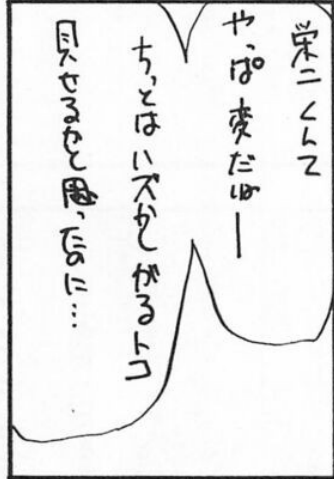 栄二くんて
やっぱ変だなー
ちっとはハズかしがるトコ
見せるかと思ったのに…